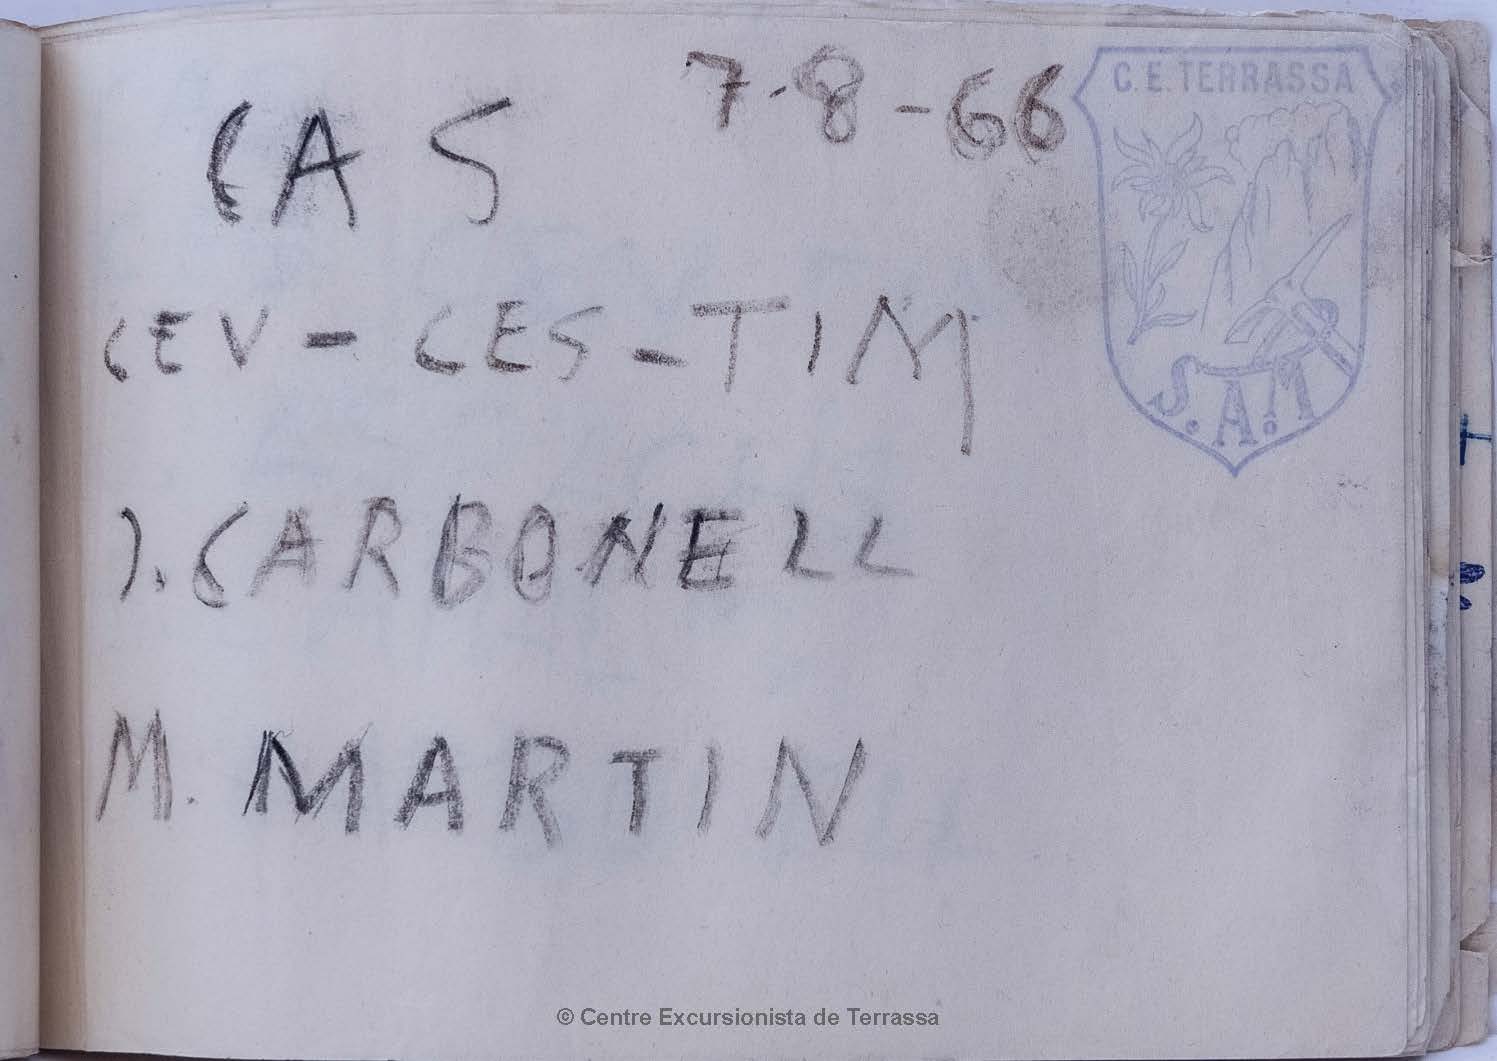 CAS
7-8-66
C.E. TERRASSA
S.A.T
CEV - CES - TIM
J. CARBONELL
M. MARTIN
© Centre Excursionista de Terrassa